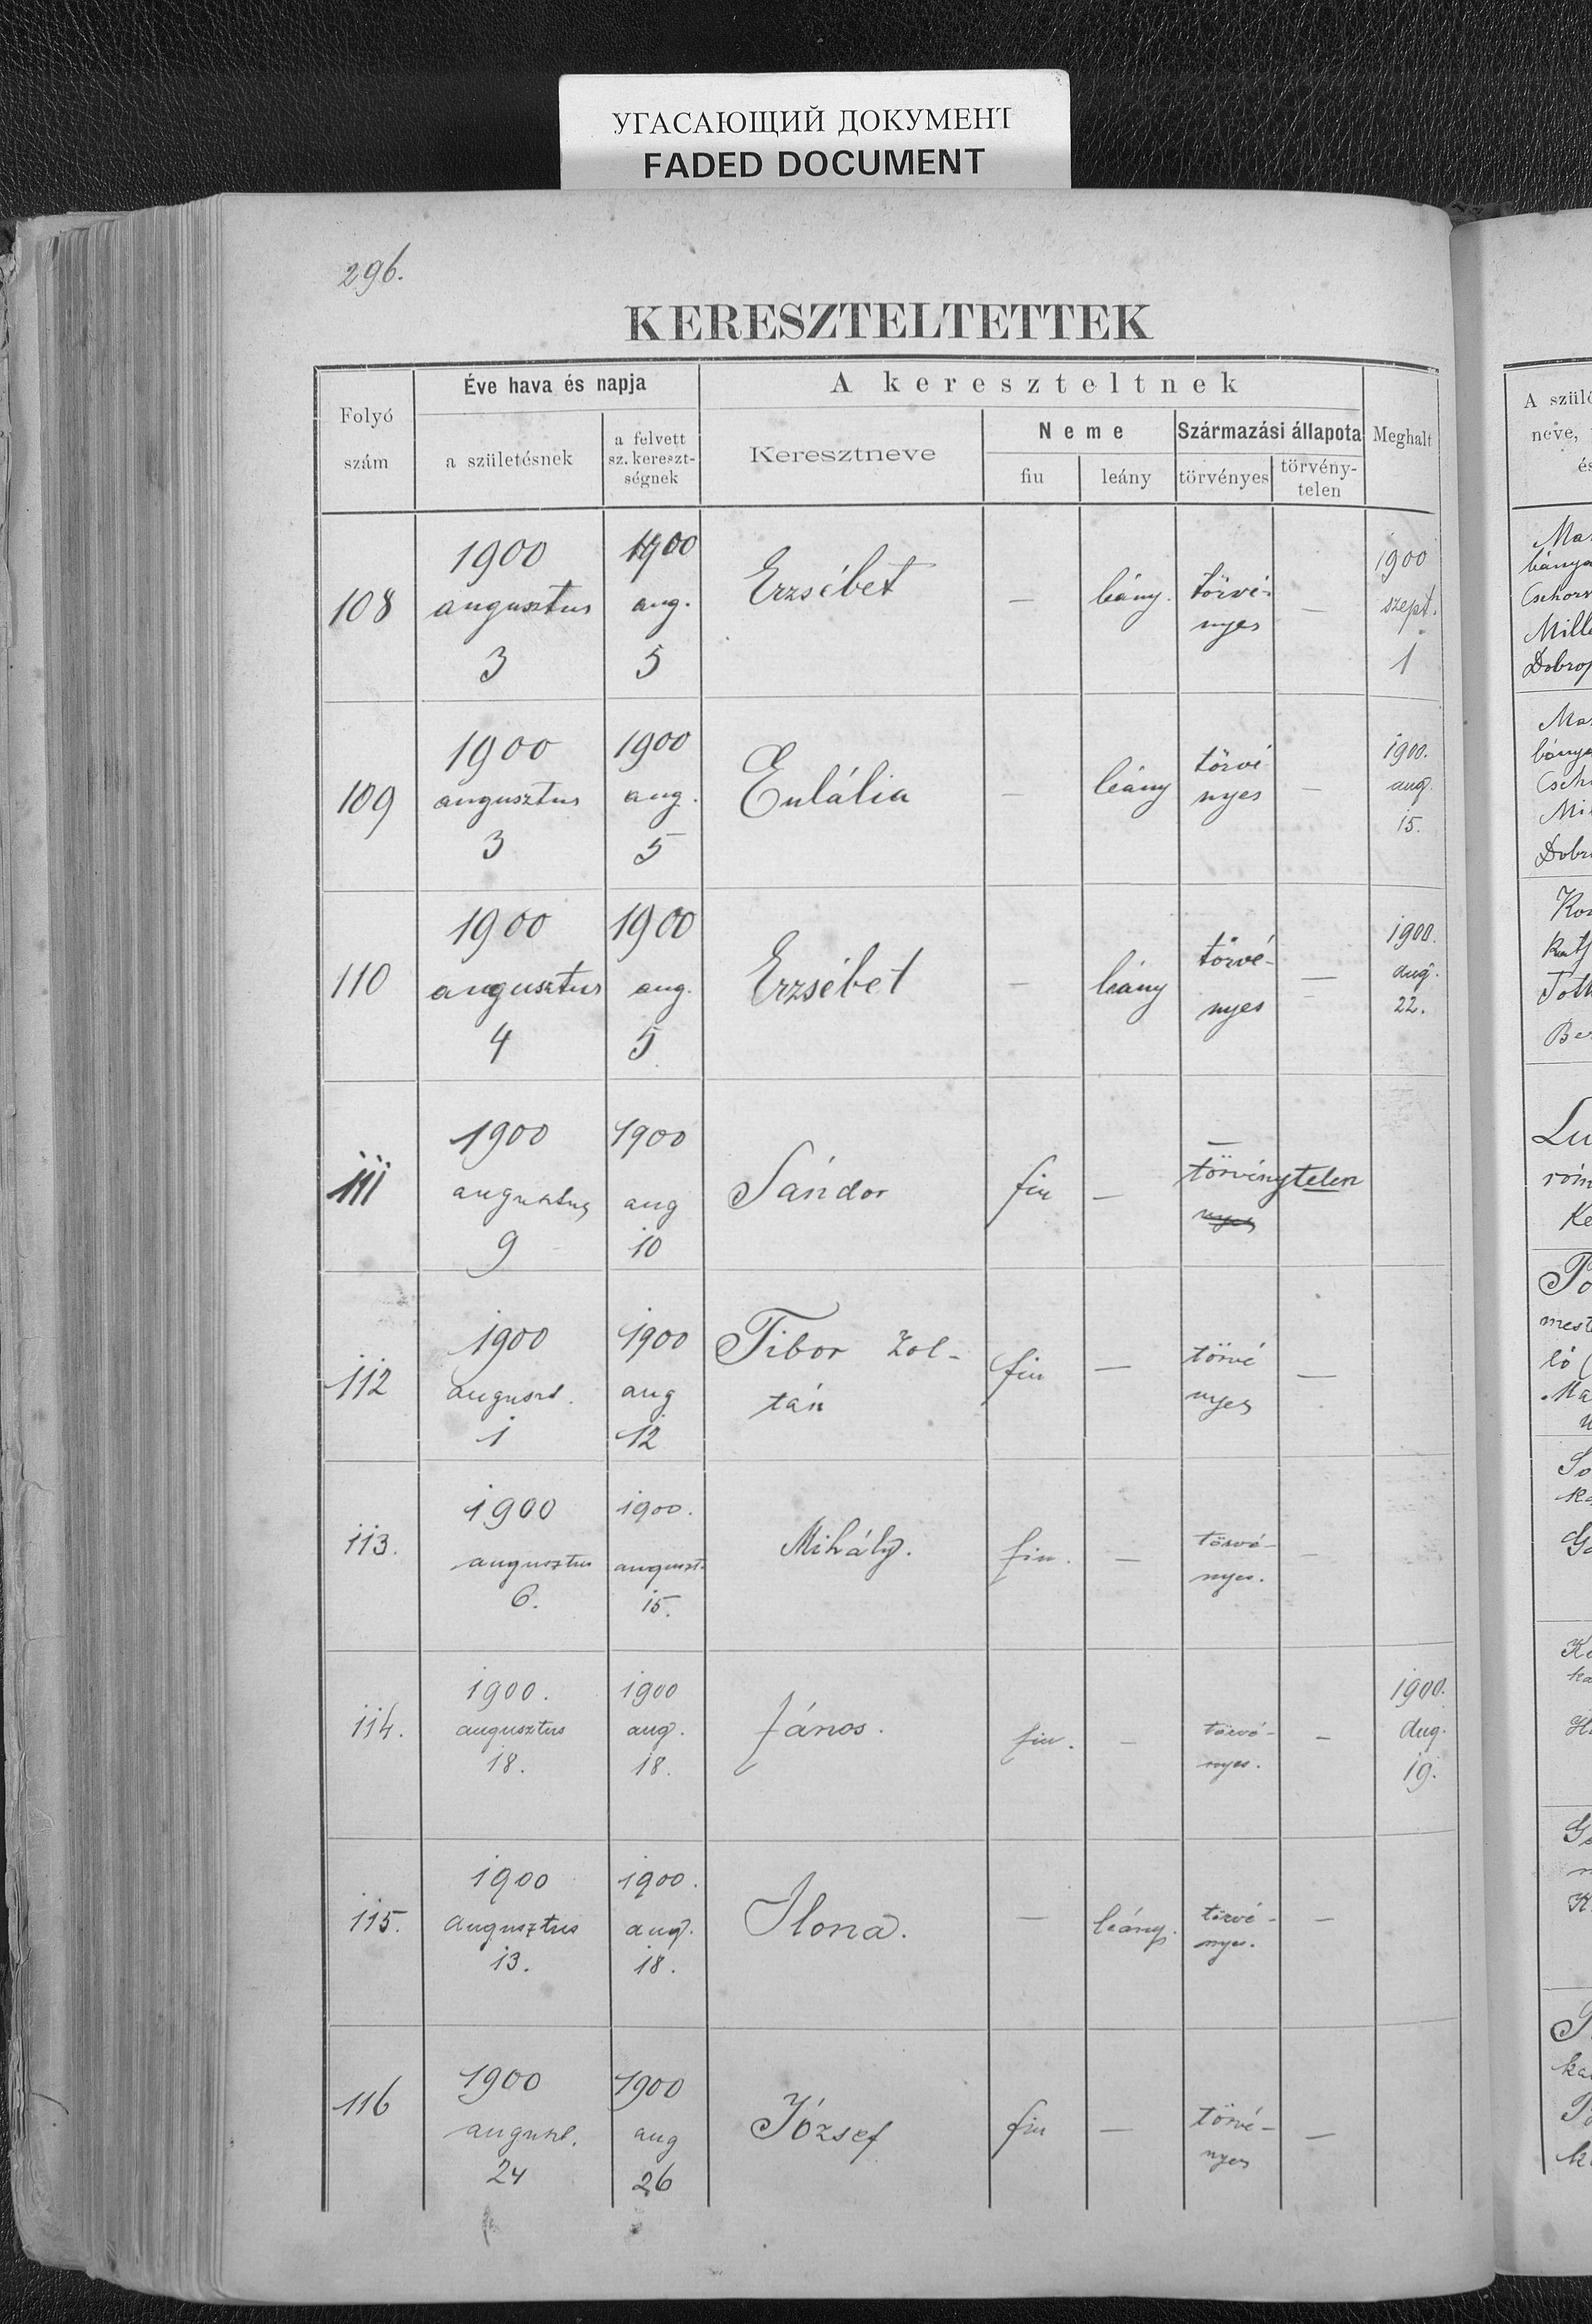 УГАСАЮЩИЙ ДОКУМЕНТ
FADED DOCUMENT
296.
KERESZTELTETTEK
Folyó szám
Éve hava és napja
a születésnek
a felvett sz. kereszt-ségnek
A kereszteltnek
Keresztneve
Neme
fiu
leány
Származási állapota
törvényes
törvény-telen
Meghalt
108
1900 augusztus 3
1900 aug. 5
Erzsébet
—
leány.
törvé-nyes
—
1900 szept. 1
109
1900 augusztus 3
1900 aug. 5
Eulália
—
leány
törvé nyes
—
1900. aug. 15.
110
1900 augusztus 4
1900 aug. 5
Erzsébet
—
leány
törvé-nyes
—
1900. aug. 22.
111
1900 augusztus 9
1900 aug 10
Sándor
fiu
—
törvénytelen
nyes
112
1900 auguszt. 1
1900 aug 12
Tibor Zol-tán
fiu
—
törvé nyes
—
113.
1900 augusztus 6.
1900. auguszt. 15.
Mihály.
fiu.
—
törvé-nyes.
—
114.
1900. augusztus 18.
1900 aug. 18.
János.
fiu.
—
törvé-nyes.
—
1900. Aug. 19.
115.
1900 Augusztus 13.
1900. aug. 18.
Ilona.
—
leány.
törvé-nyes.
—
116
1900 auguszt. 24
1900 aug 26
József
fiu
—
törvé-nyes
—
A szül
neve,
és